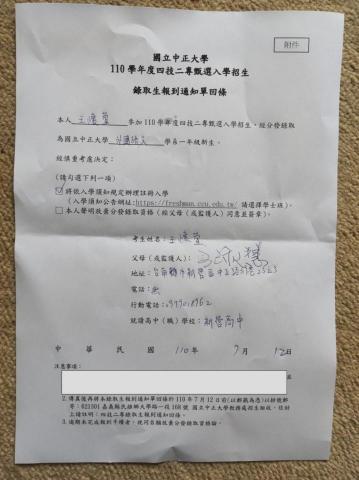 附件
國立中正大學
110 學年度四技二專甄選入學招生
錄取生報到通知單回條
本人 參加 110 學年度四技二專甄選入學招生，經分發錄取
為國立中正大學 學系一年級新生。
經慎重考慮決定：
(請勾選下列一項)
☑將依入學須知規定辦理註冊入學
(入學須知公告網址:https://freshman.ccu.edu.tw/ 請選擇學士班)。
□本人聲明放棄分發錄取資格（經父母(或監護人)同意並簽章）。
考生姓名:
父母(或監護人):
地址:
電話:無
行動電話:
就讀高中(職)學校: 新營高中
中 華 民 國 110年 7月 12日
注意事項:
2.傳真後再將本錄取生報到通知單回條於 110 年 7 月 12 日前(以郵戳為憑)以掛號郵
寄:621301 嘉義縣民雄鄉大學路一段 168 號 國立中正大學教務處招生組收，信封
上請註明:四技二專甄選錄取生報到。
3.逾期未完成報到手續者，視同自願放棄分發錄取資格論。